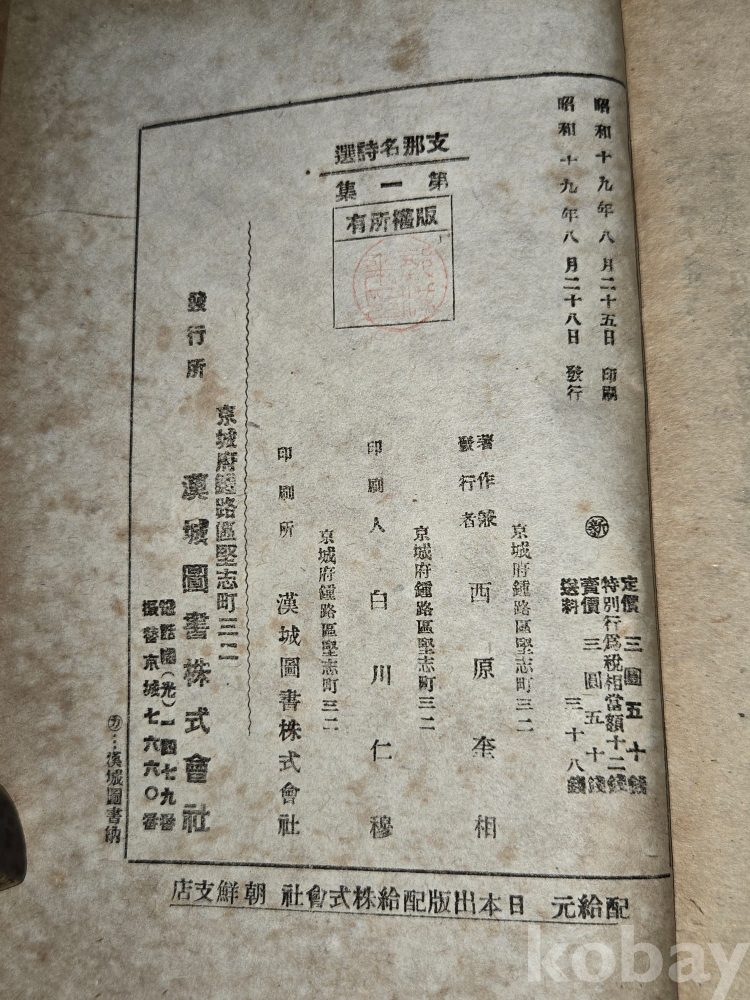 昭和十九年八月二十五日 印刷
昭和十九年八月二十八日 發行
支那名詩選
第一集
版權所有
㊟定價 三圓五十錢
特別行爲稅相當額十二錢
賣價 三圓五十錢
送料 三十八錢
京城府鍾路區堅志町三二
著作兼
發行者 西原奎相
京城府鍾路區堅志町三二
印刷人 白川仁穆
京城府鍾路區堅志町三二
印刷所 漢城圖書株式會社
京城府鍾路區堅志町三二
發行所 漢城圖書株式會社
電話國(光)一四七九番
振替京城七六六〇番
㋕…漢城圖書納
配給元 日本出版配給株式會社 朝鮮支店
kobay